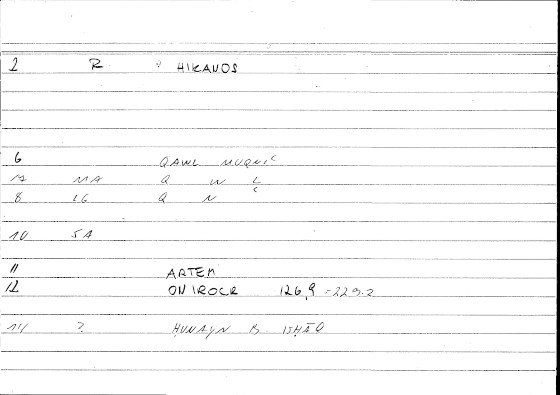 2 R ? HIKANOS
6 QAWL MUQNIʿ
7 MA Q W L
8 16 Q N ʿ
10 5A
11 ARTEM
12 ONIROCR 126,9 = 229.2
14 2 ḤUNAYN B. ISḤĀQ